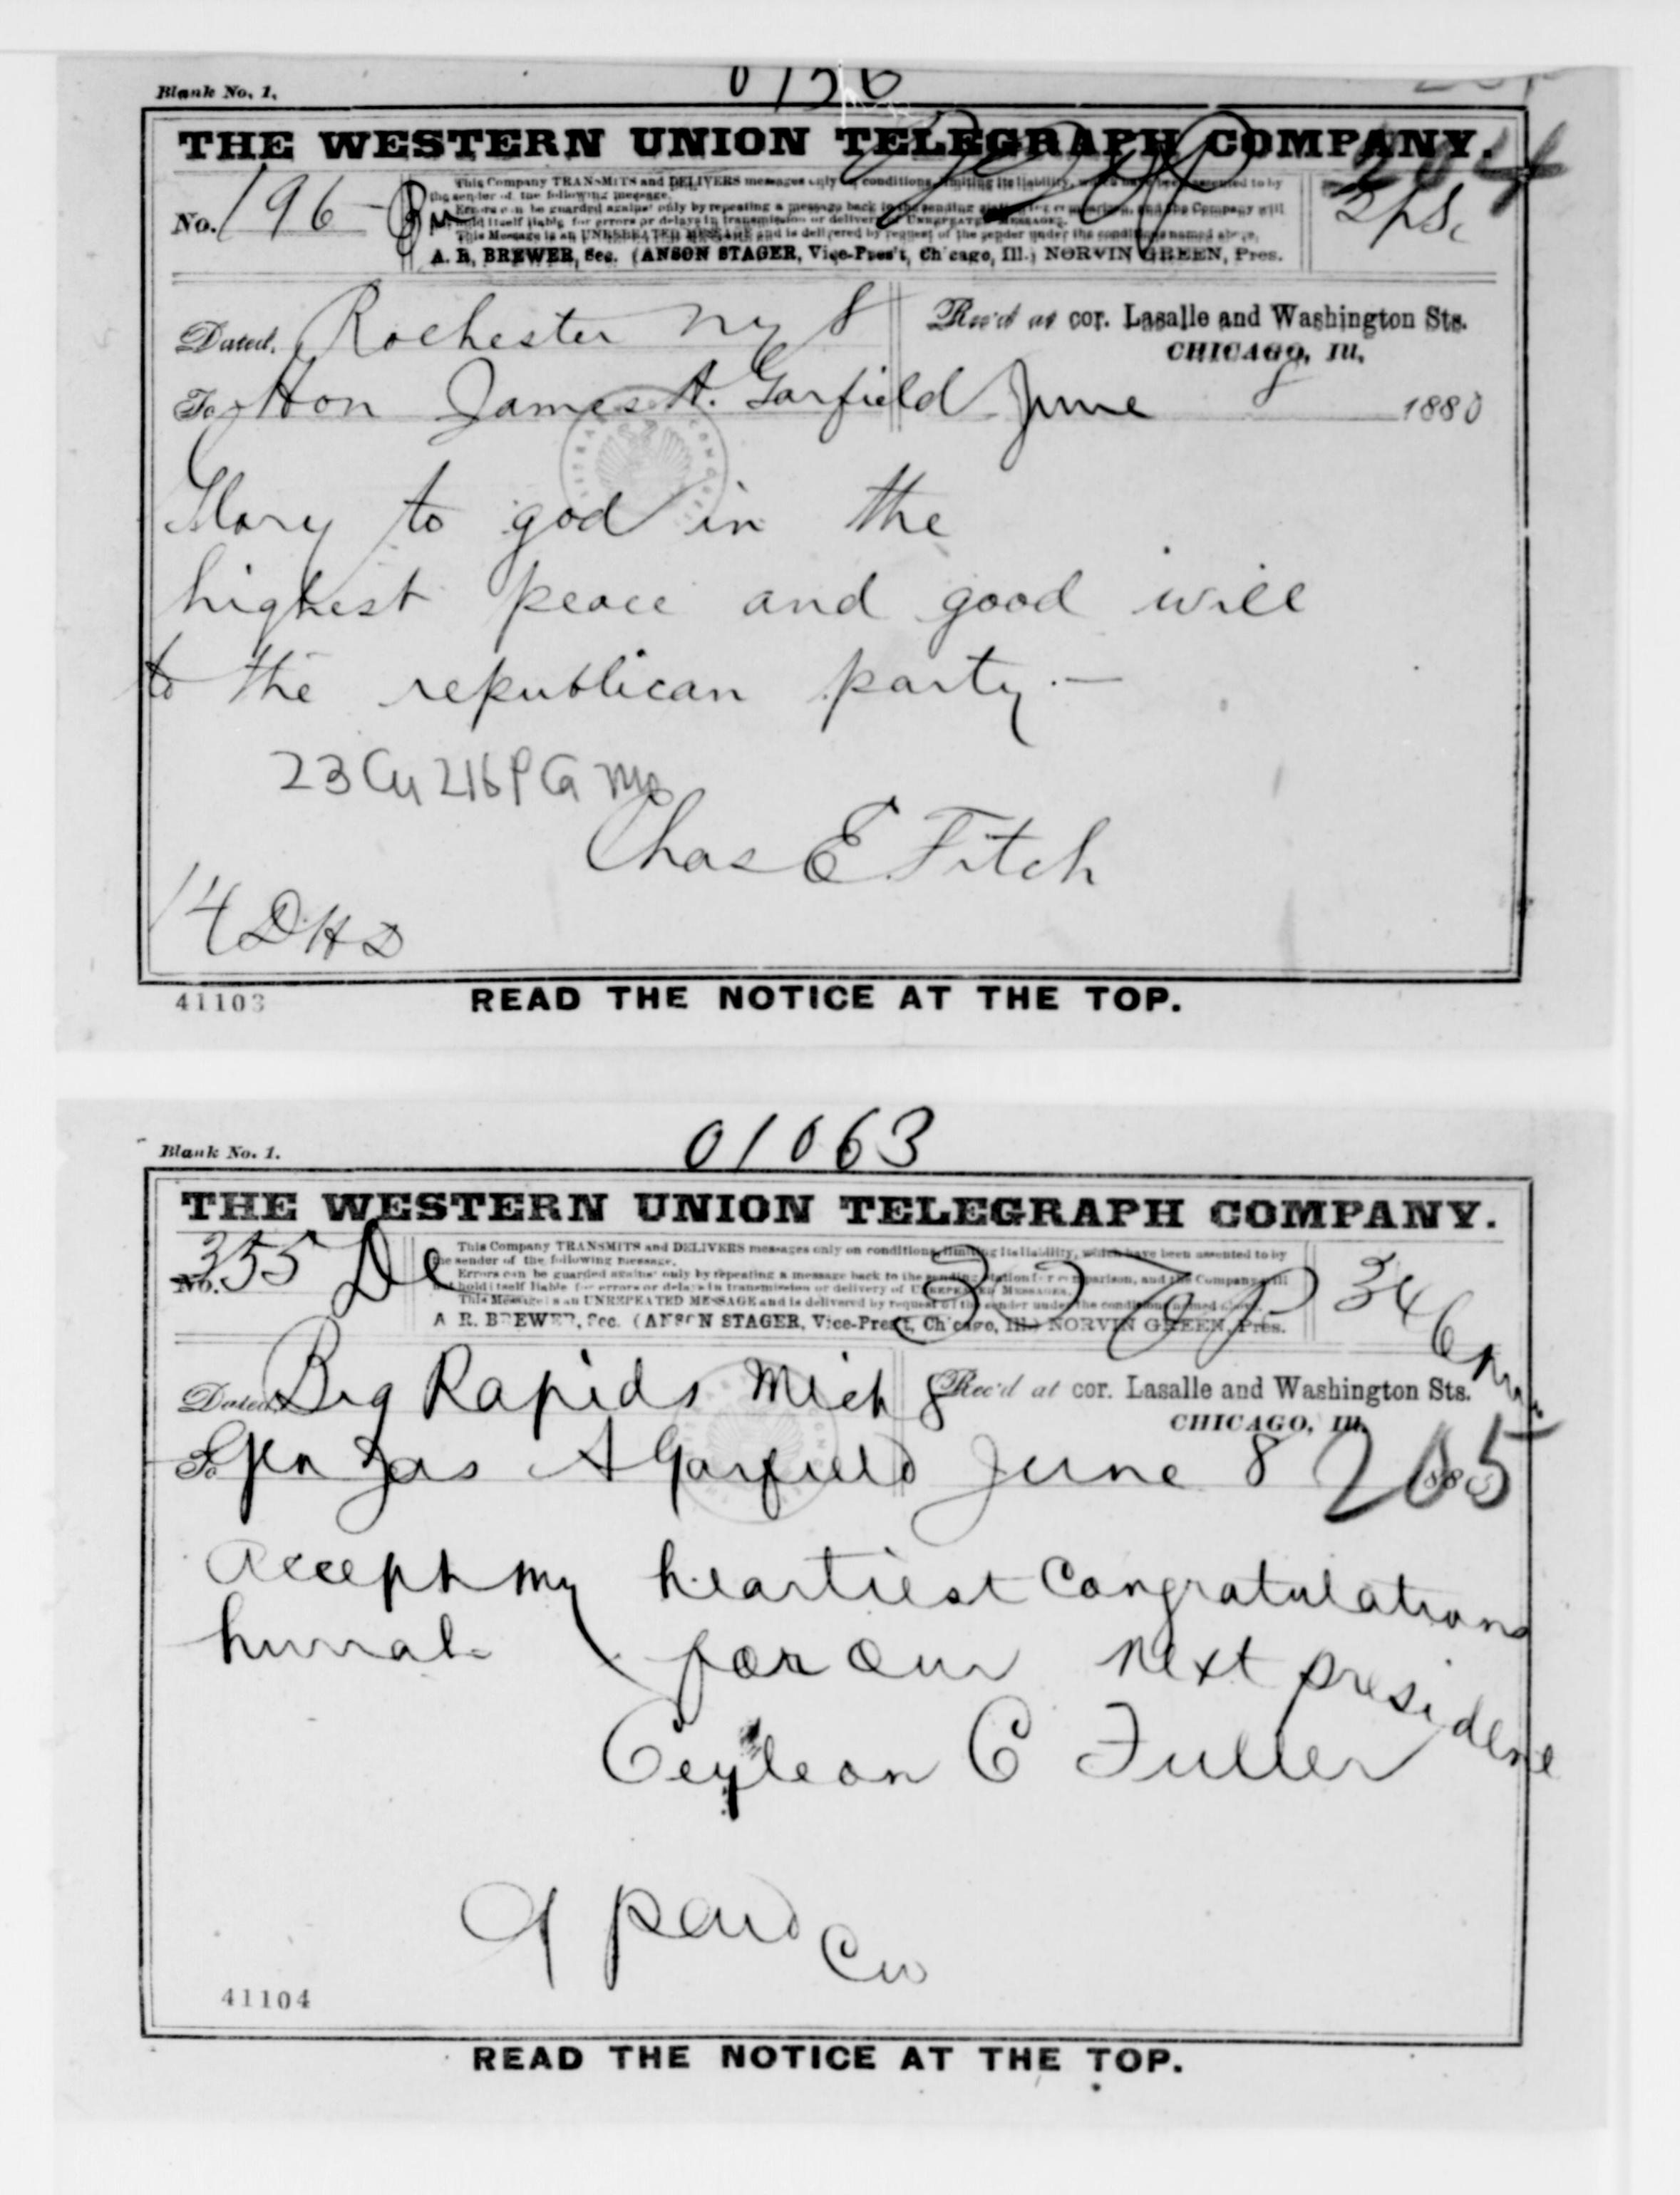 Blank No. 1.
THE WESTERN UNION TELEGRAPH COMPANY.
204
This Company TRANSMITS and DELIVERS messages only on conditions, limiting its liability, which have been assented to by
the sender of the following message.
Errors can be guarded against only by repeating a message back to the sending station for comparison, and the Company will
not hold itself liable for errors or delays in transmission or delivery of UNREPEATED MESSAGES.
This Message is an UNREPEATED MESSAGE and is delivered by request of the sender under the conditions named above.
No. 196
A. R. BREWER, Sec. (ANSON STAGER, Vice-Pres't, Chicago, Ill.) NORVIN GREEN, Pres.
Dated, Rochester Ny 8
Rec'd at cor. Lasalle and Washington Sts.
CHICAGO, Ill.
To Hon James A. Garfield June 8 1880
Glory to god in the
highest peace and good will
to the republican party.—
23 Cu 216 P G
Chas E Fitch
14 DHD
41103
READ THE NOTICE AT THE TOP.
01063
Blank No. 1.
THE WESTERN UNION TELEGRAPH COMPANY.
No. 355 De
This Company TRANSMITS and DELIVERS messages only on conditions, limiting its liability, which have been assented to by
the sender of the following message.
Errors can be guarded against only by repeating a message back to the sending station for comparison, and the Company will
not hold itself liable for errors or delays in transmission or delivery of UNREPEATED MESSAGES.
This Message is an UNREPEATED MESSAGE and is delivered by request of the sender under the conditions named above.
A. R. BREWER, Sec. (ANSON STAGER, Vice-Pres't, Chicago, Ill.) NORVIN GREEN, Pres.
346
Dated Big Rapids Mich 8
Rec'd at cor. Lasalle and Washington Sts.
CHICAGO, Ill.
To Gen Jas A Garfield June 8 1880
205
Accept my heartiest Congratulations
hurrah for our next president
Ceyleon C Fuller
9 paid
Cw
41104
READ THE NOTICE AT THE TOP.